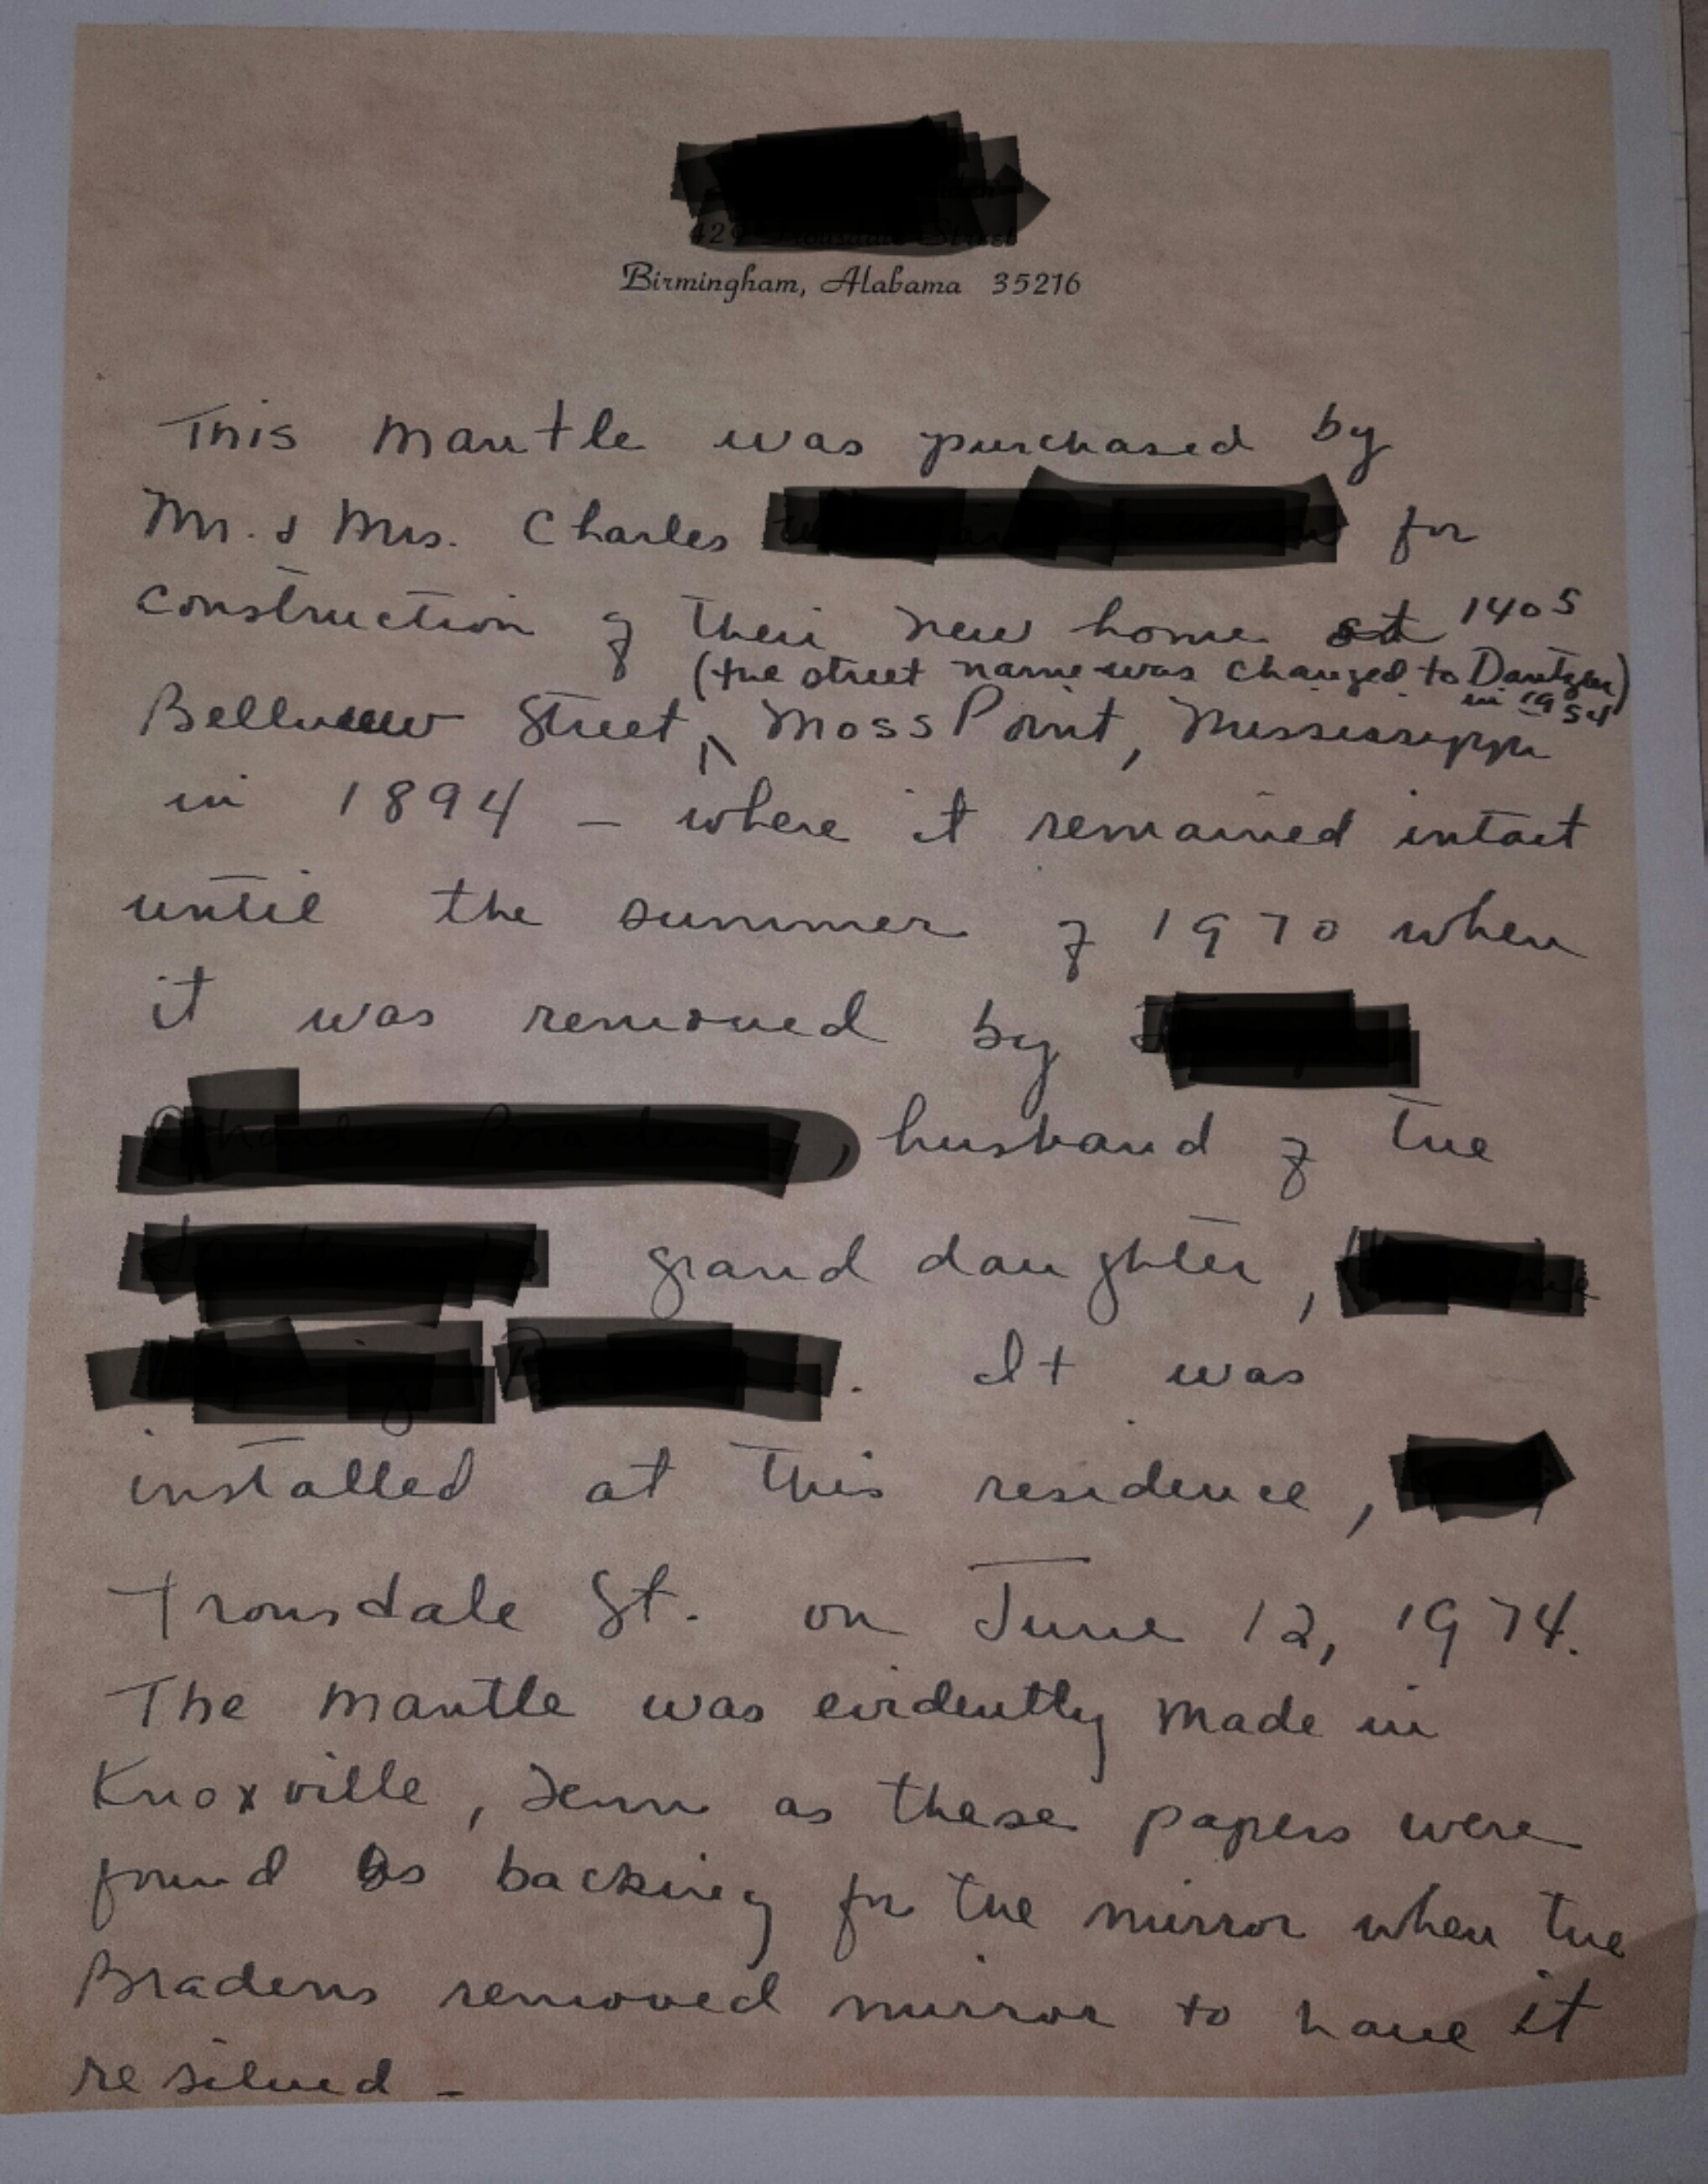 Birmingham, Alabama 35216
This mantle was purchased by
Mr. & Mrs. Charles for
construction of their new home at 1405
(the street name was changed to Dantzler)
in 1954
Bellview Street, Moss Point, Mississippi
in 1894 – where it remained intact
until the summer of 1970 when
it was removed by
, husband of the
grand daughter,
. It was
installed at this residence,
Trousdale St. on June 12, 1974.
The mantle was evidently made in
Knoxville, Tenn as these papers were
found as backing for the mirror when the
Bradens removed mirror to have it
resilved –